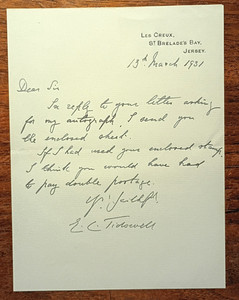 Les Creux,
St Brelade's Bay,
Jersey.
13th March 1931
Dear Sir
In reply to your letter asking
for my autograph, I send you
the enclosed sheet.
If I had used your enclosed stamp,
I think you would have had
to pay double postage.
E. C. Tidswell